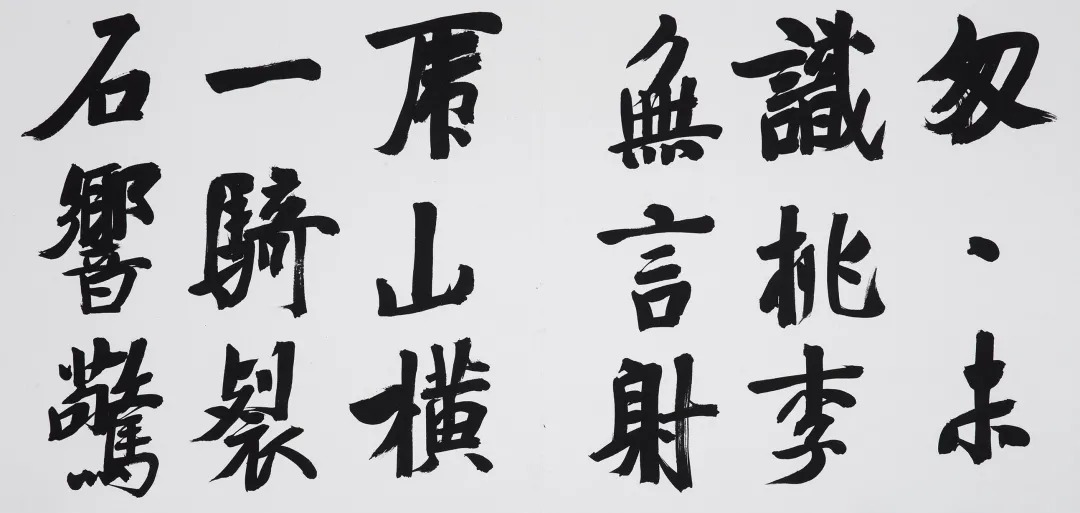 匆々未
識桃李
無言射
虎山横
一騎裂
石響驚